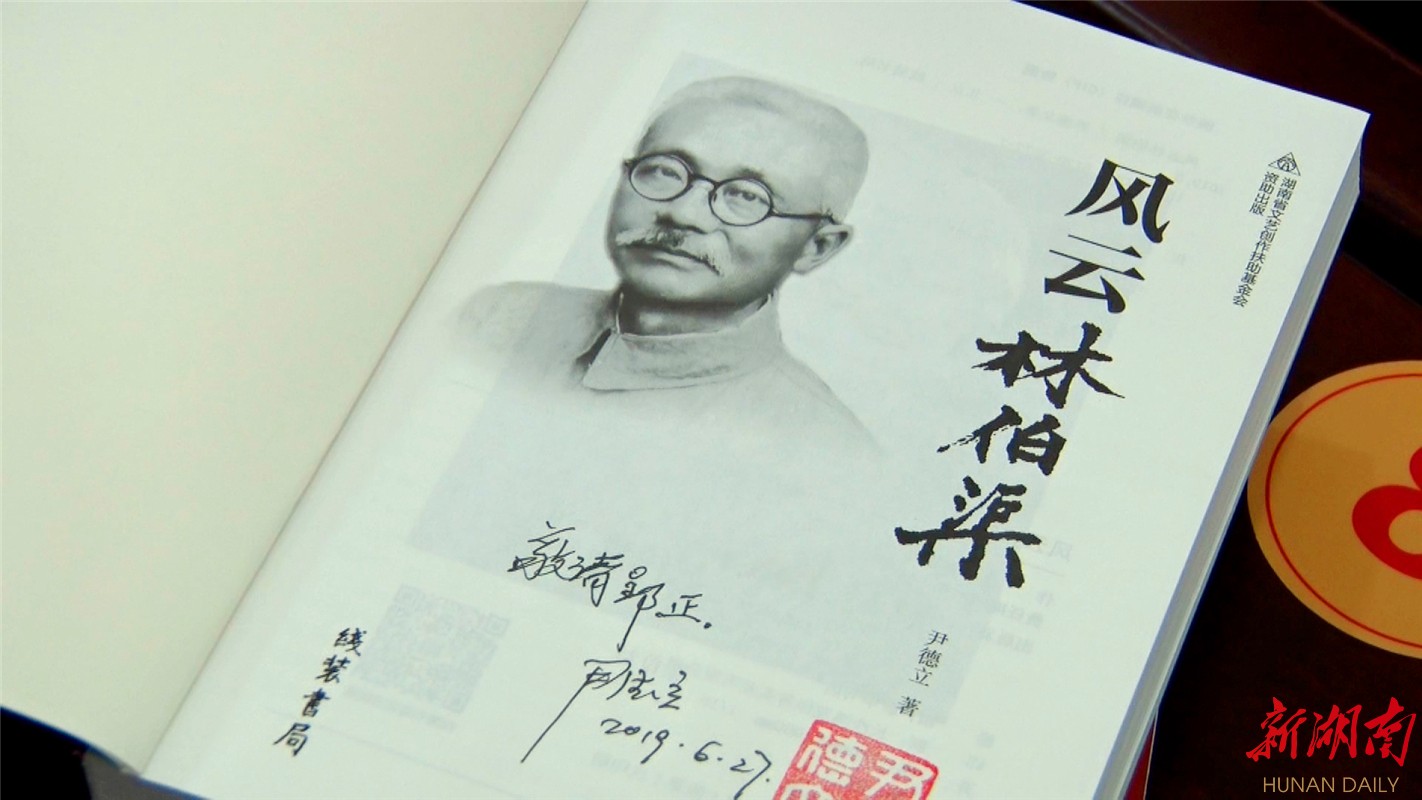 湖南省文艺创作扶助基金会
资助出版
风云林伯渠
尹德立 著
敬请郢正。
尹德立
2019.6.27.
线装书局
尹
德
8
新湖南
HUNAN DAILY